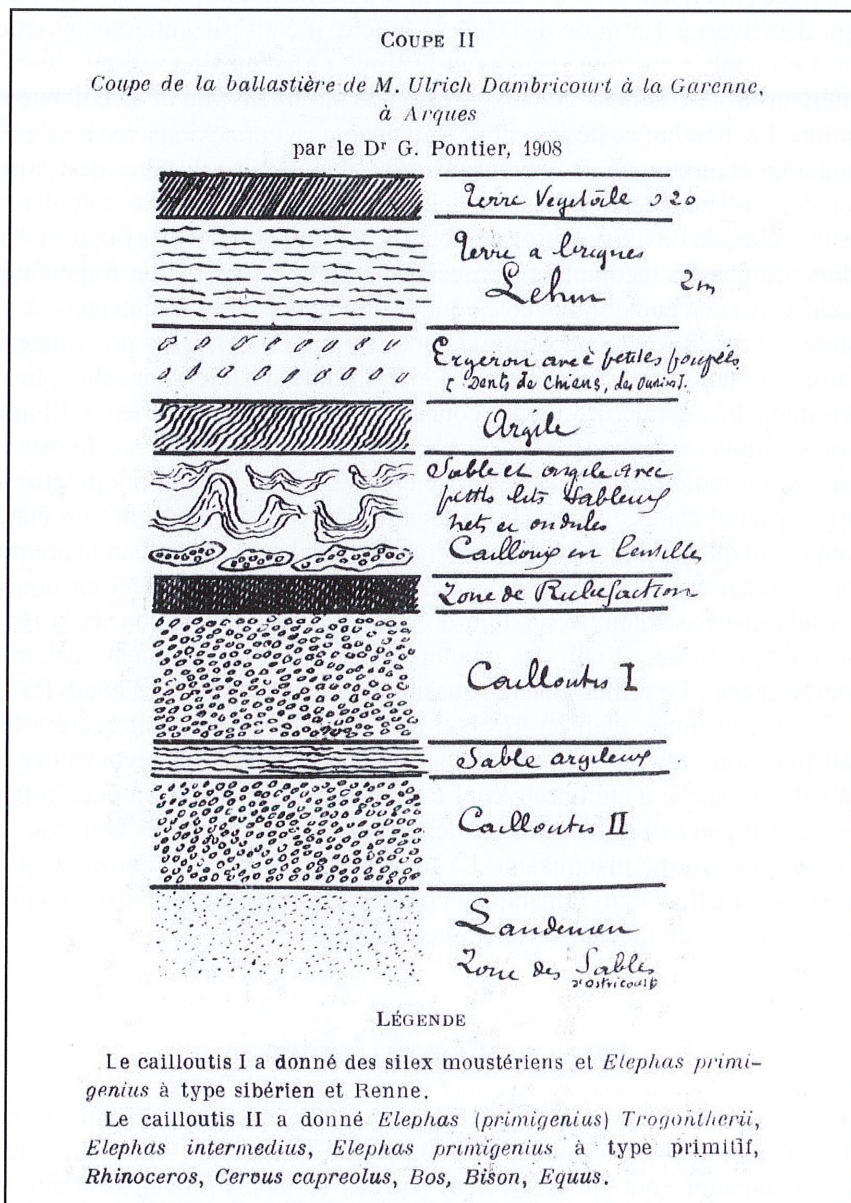 COUPE II
Coupe de la ballastière de M. Ulrich Dambricourt à la Garenne,
à Arques
par le Dr G. Pontier, 1908
Terre Vegetale 0 20
Terre a briques
Lehm 2m
Ergeron avec petites poupées
Dents de Chiens, des
Argile
Sable et argile avec
petits lits Sableux
nets et ondules
Cailloux en lentilles
Zone de Rubefaction
Cailloutis I
Sable argileux
Cailloutis II
Landenien
Zone des Sables
d'Ostricourt
LÉGENDE
Le cailloutis I a donné des silex moustériens et Elephas primi-
genius à type sibérien et Renne.
Le cailloutis II a donné Elephas (primigenius) Trogontherii,
Elephas intermedius, Elephas primigenius à type primitif,
Rhinoceros, Cervus capreolus, Bos, Bison, Equus.